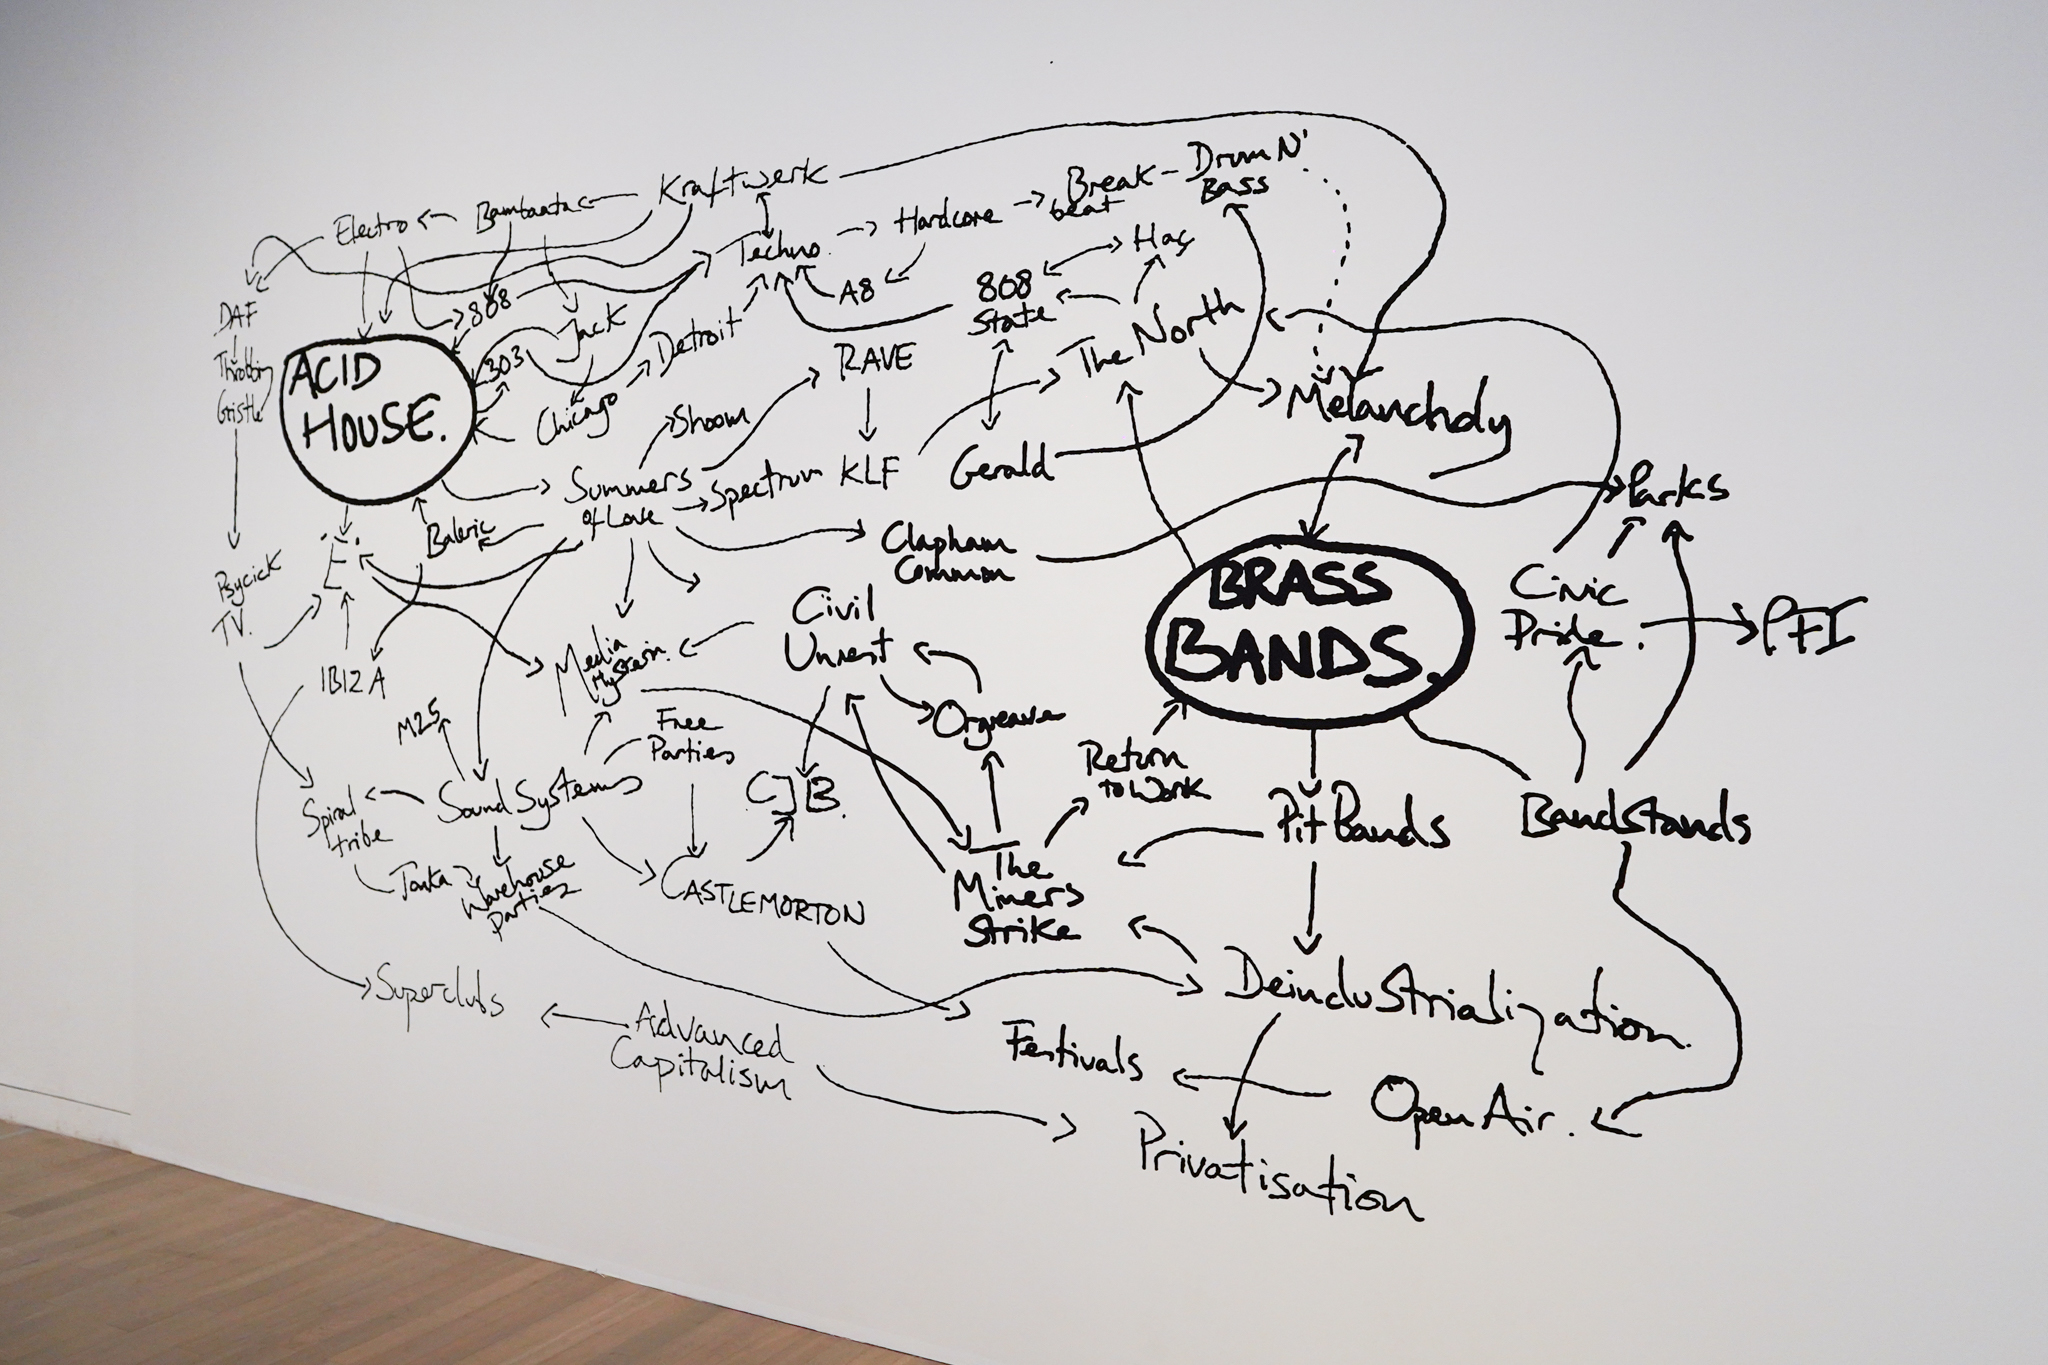 Kraftwerk
Bambaata
Electro
Techno.
Hardcore
Break
beat
Drum N'
Bass
Hac
DAF
Throbbing
Gristle
808
Jack
A8
808
State
The North
ACID
HOUSE.
303
Chicago
Detroit
RAVE
Melancholy
Shoom
Summers
of Love
Spectrum
KLF
Gerald
Parks
Baleric
'E'.
Clapham
Common
BRASS
BANDS.
Civic
Pride.
PFI
Psycick
TV.
IBIZA
Media
Hysteria.
Civil
Unrest
Orgreave
M25
Free
Parties
Return
to Work
Spiral
tribe
Sound Systems
CJB.
Pit Bands
Bandstands
Tonka
Warehouse
parties
CASTLEMORTON
The
Miners
Strike
Superclubs
Advanced
Capitalism
Deindustrialization.
Festivals
Open Air.
Privatisation